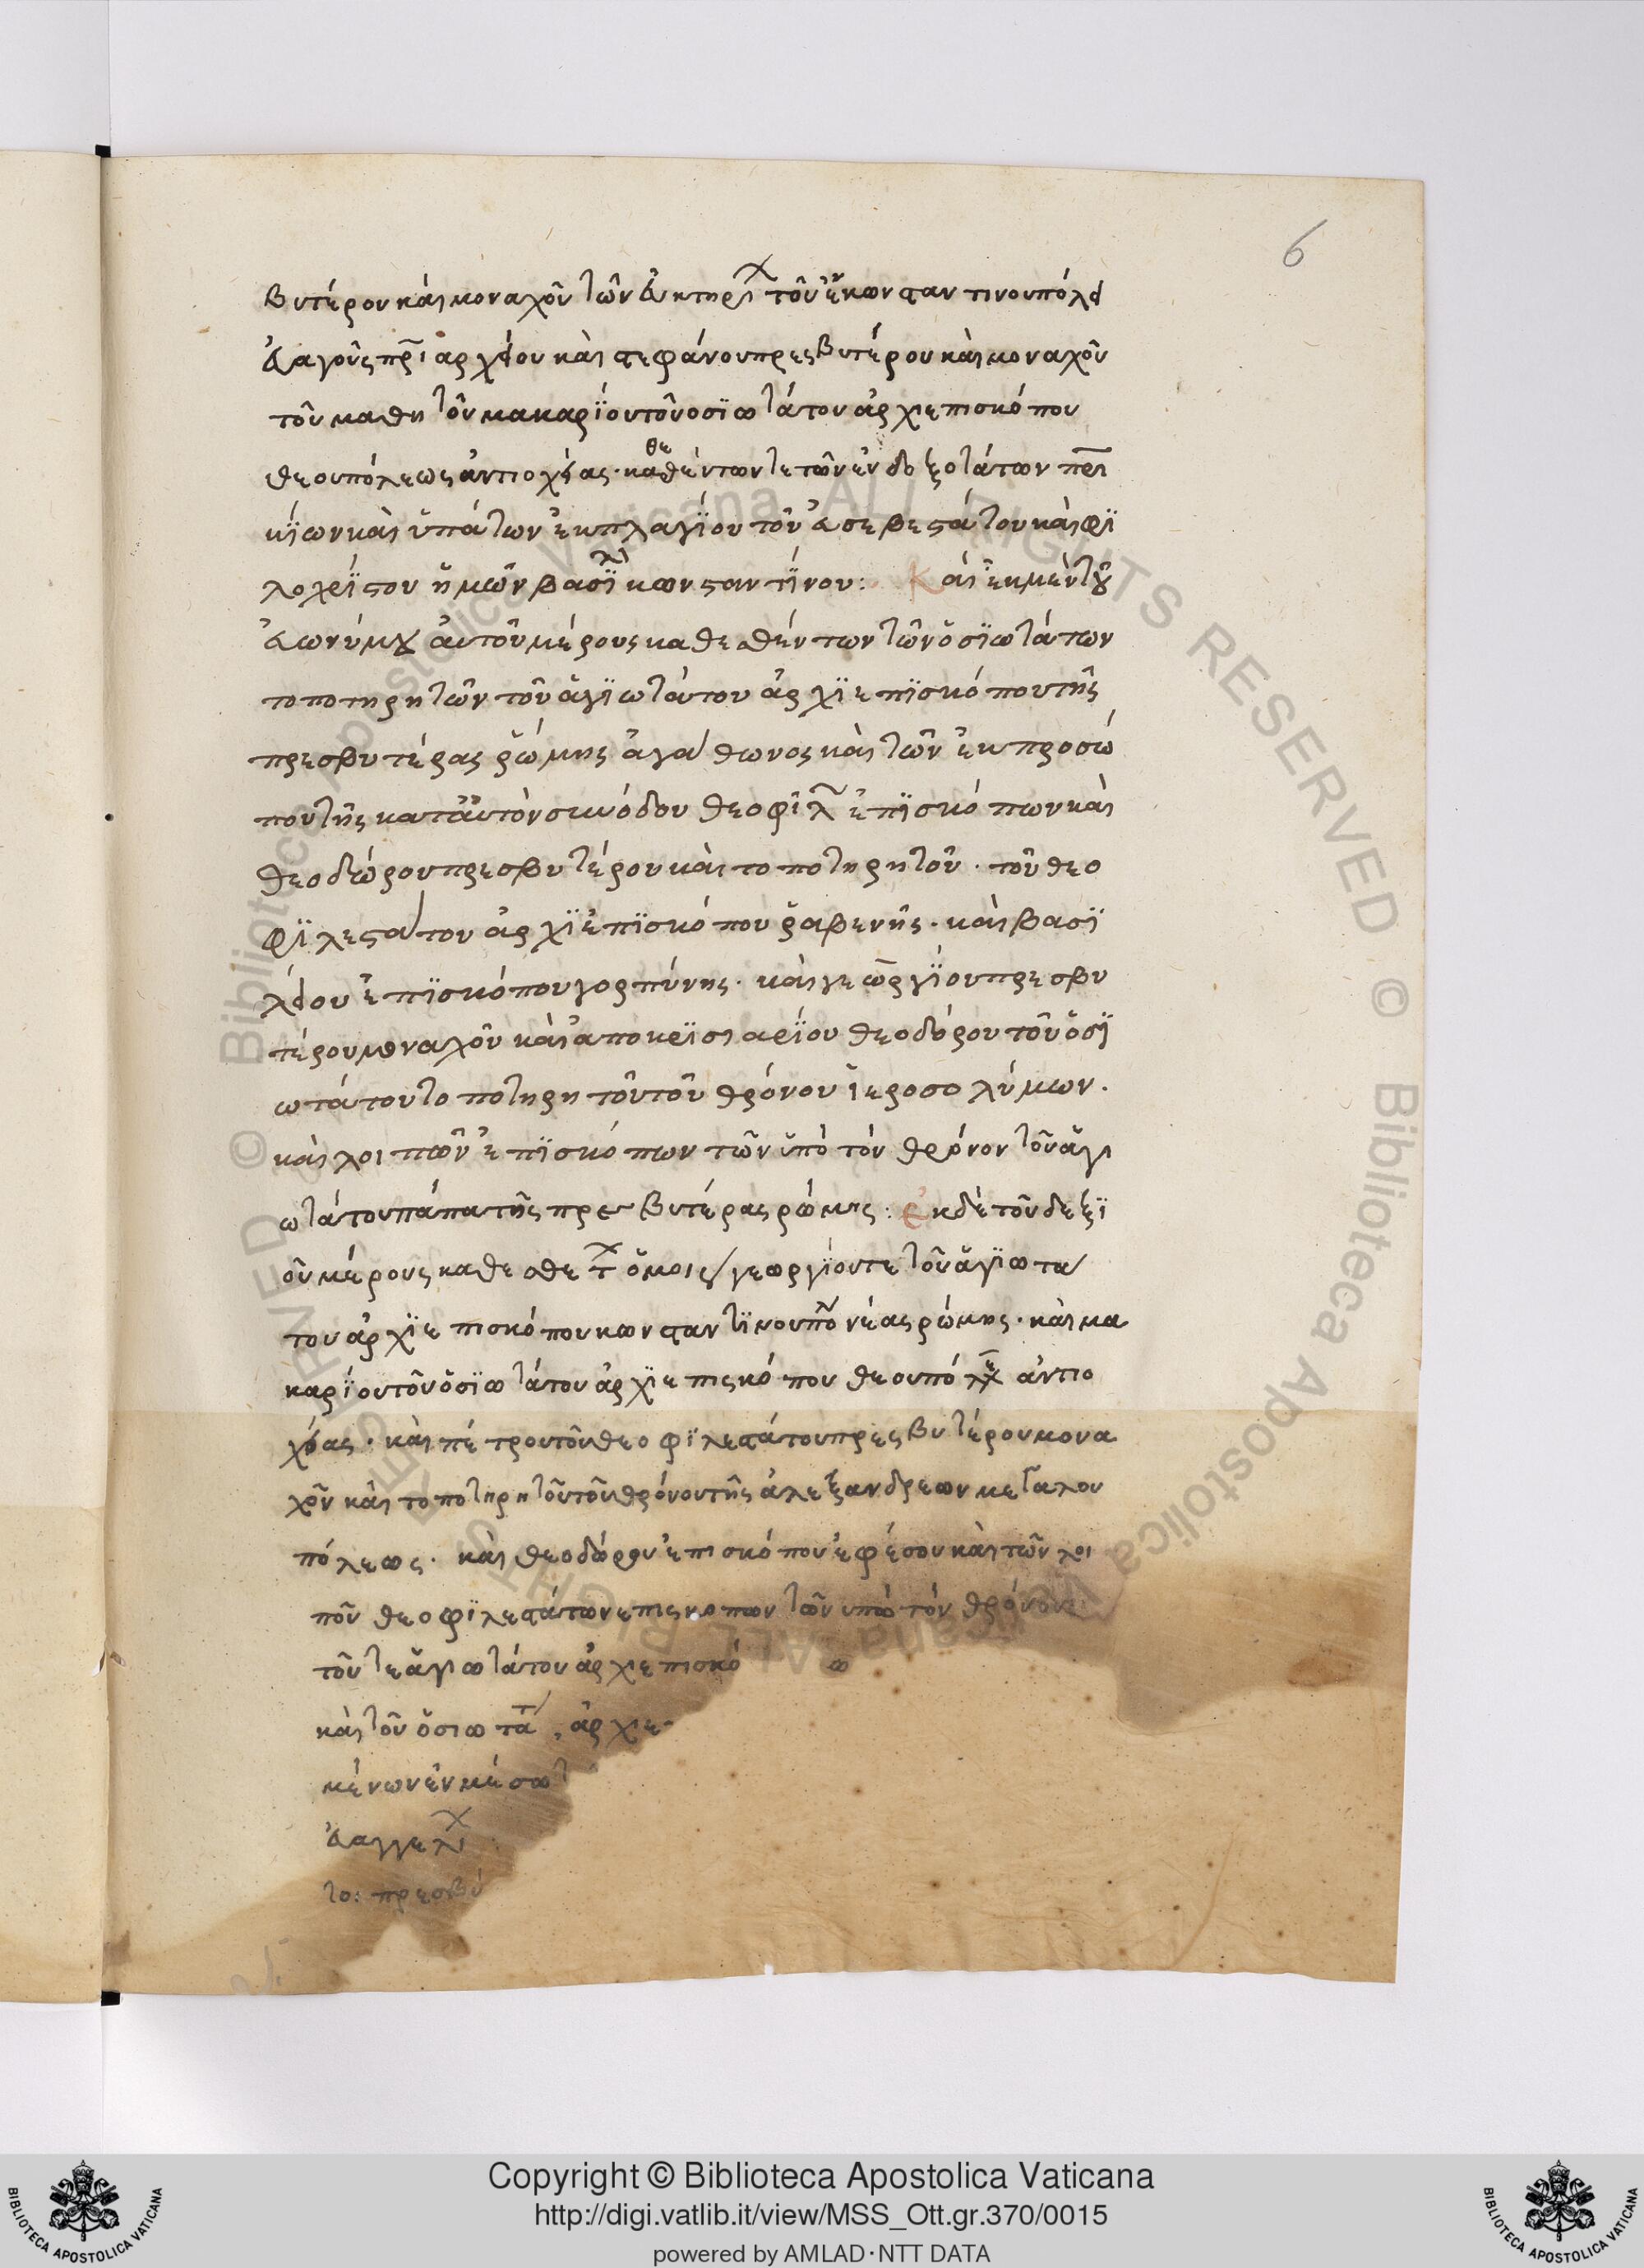 6
βυτέρου καὶ μοναχοῦ τῶν εὐκτηρί τοῦ ἐν κωνσταντινουπόλει
εὐαγοῦς πρι αρχείου καὶ στεφάνου πρεσβυτέρου καὶ μοναχοῦ
τοῦ μαθητοῦ μακαρΐου τοῦ οσϊωτάτου ἀρχιεπισκόπου
θεουπόλεως ἀντιοχείας · καθεθέντων τε τῶν ἐνδοξοτάτων πρι
κΐων καὶ ὑπάτων ἐκ πλαγΐου τοῦ εὐσεβεστάτου καὶ φϊ
λοχρΐστου ἡμῶν βασϊλ κωνσταντΐνου : Καὶ ἐκ μὲν τοῦ
εὐωνύμου αὐτοῦ μέρους καθεσθέντων τῶν ὁσϊωτάτων
τοποτηρητῶν τοῦ ἁγϊωτάτου ἀρχϊεπϊσκόπου τῆς
πρεσβυτέρας ῥώμης ἀγάθωνος καὶ τῶν ἐκ προσώ
που τῆς κατ' αὐτὸν συνόδου θεοφιλ ἐπϊσκόπων καὶ
θεοδώρου πρεσβυτέρου καὶ τοποτηρητοῦ · τοῦ θεο
φϊλεστάτου ἀρχϊεπϊσκόπου ῥαβενῆς · καὶ βασϊ
λείου ἐπϊσκόπου γορτύνης · καὶ γεωργΐου πρεσβυ
τέρου μοναχοῦ καὶ ἀποκρϊσιαρΐου θεοδόρου τοῦ ὁσϊ
ωτάτου τοποτηρητοῦ τοῦ θρόνου ἱεροσολύμων ·
καὶ λοιπῶν ἐπϊσκόπων τῶν ὑπὸ τὸν θρόνον τοῦ ἁγι
ωτάτου πάπα τῆς πρεσβυτέρας ρώμης : ἐκ δὲ τοῦ δεξϊ
οῦ μέρους καθεσθετ ὁμοι γεωργΐου τε τοῦ ἁγϊωτά
του ἀρχϊεπισκόπου κωνσταντϊνουπο νέας ρώμης · καὶ μα
καρΐου τοῦ ὁσϊωτάτου ἀρχϊεπισκόπου θεουπόλε ἀντιο
χείας · καὶ πέτρου τοῦ θεοφϊλεστάτου πρεσβυτέρου μονα
χοῦ καὶ τοποτηρητοῦ τοῦ θρόνου τῆς ἀλεξανδρεων μεγάλου
πόλεως · καὶ θεοδώρου ἐπισκόπου ἐφέσου καὶ τῶν λοι
πῶν θεοφϊλεστάτων επισκοπων τῶν υπὸ τὸν θρόνον
τοῦ τε ἁγιωτάτου ἀρχιεπισκό
καὶ τοῦ ὁσιωτατ ἀρχιε
μένων ἐν μέσω
εὐαγγελι
το : πρεσβύ
Copyright © Biblioteca Apostolica Vaticana
http://digi.vatlib.it/view/MSS_Ott.gr.370/0015
powered by AMLAD·NTT DATA